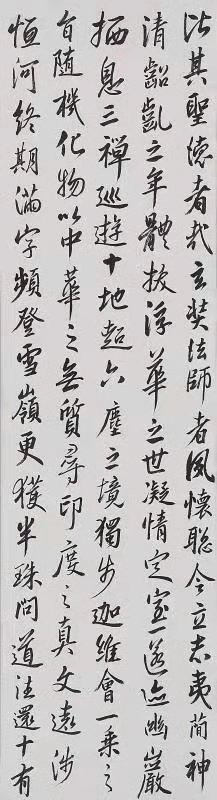 比其聖德者哉玄奘法師者夙懷聰令立志夷簡神
清齠齔之年體拔浮華之世凝情定室匿迹幽巖
栖息三禪巡遊十地超六塵之境獨步迦維會一乘之
旨随機化物以中華之無質尋印度之真文遠涉
恒河終期滿字頻登雪嶺更獲半珠問道法還十有